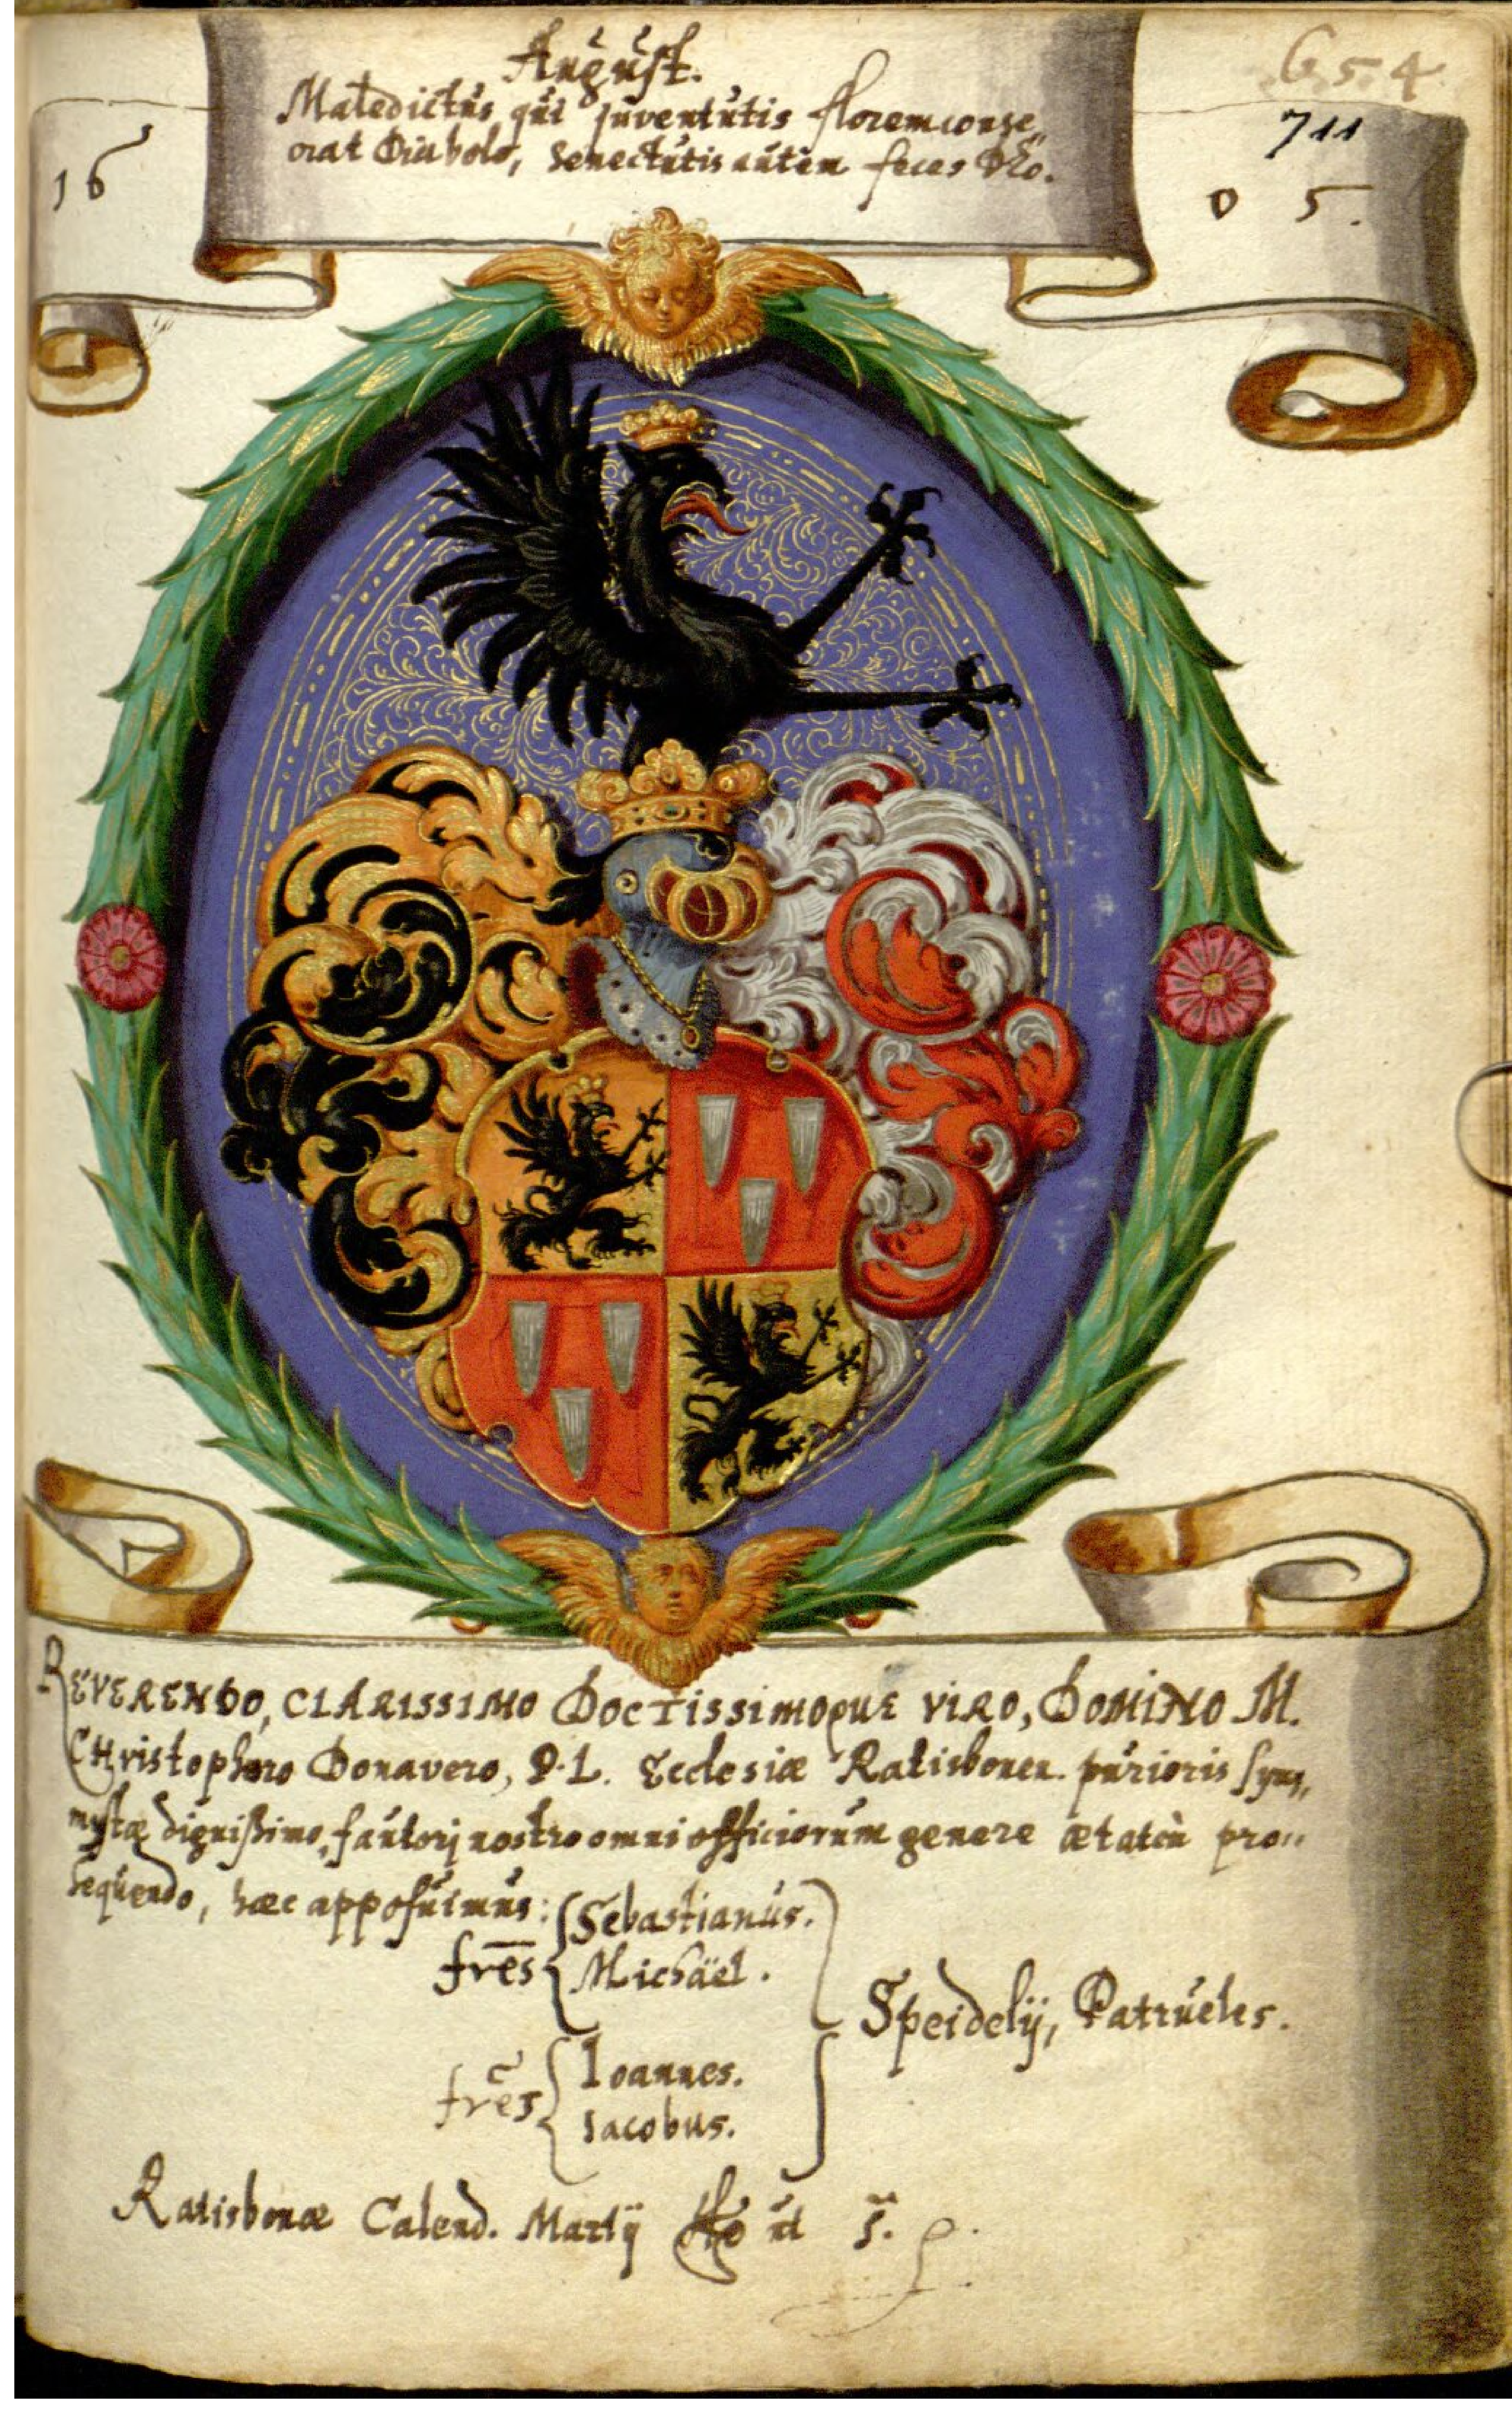 654
711
August.
Maledictus, qui juventutis florem conse„
crat Diabolo, Senectutis autem feces Deo.
16 05.
REVERENDO, CLARISSIMO DOCTISSIMOQUE VIRO, DOMINO M.
CHristophoro Donavero, P. L. Ecclesiæ Ratisbonen. purioris Sym„
mystæ dignißimo, fautorj nostro omni officiorum genere ætatem pro„
sequendo, hæc apposuimus:
fres̄ Sebastianus.
Michäel.
fres̄ Ioannes.
Iacobus.
Speidelij, Patrueles.
Ratisbonæ Calend. Martij Ao ut s̄.